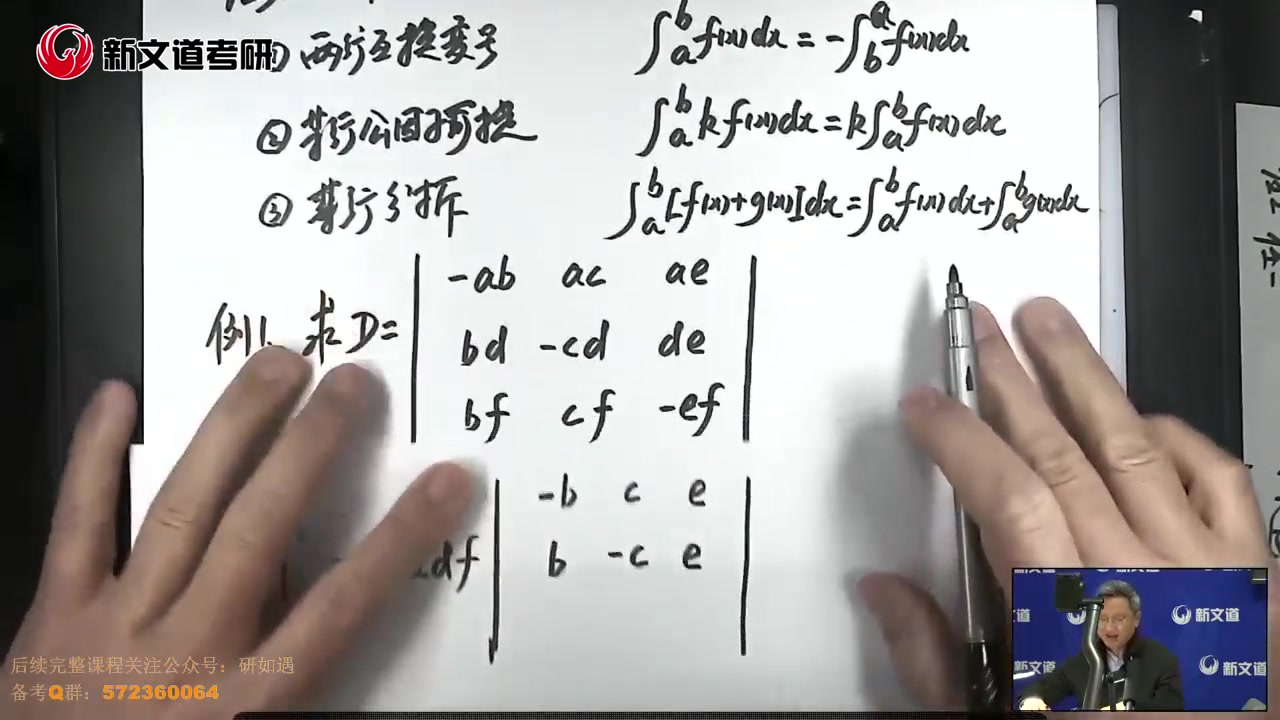 新文道考研
① 两行互换变号
∫_a^b f(x)dx = -∫_b^a f(x)dx
② 某行公因子可提
∫_a^b k f(x)dx = k∫_a^b f(x)dx
③ 某行分拆
∫_a^b [f(x)+g(x)]dx = ∫_a^b f(x)dx + ∫_a^b g(x)dx
例1、求D=
-ab ac ae
bd -cd de
bf cf -ef
df
-b c e
b -c e
新文道
新文道
新文道
新文道
后续完整课程关注公众号：研如遇
备考Q群：572360064